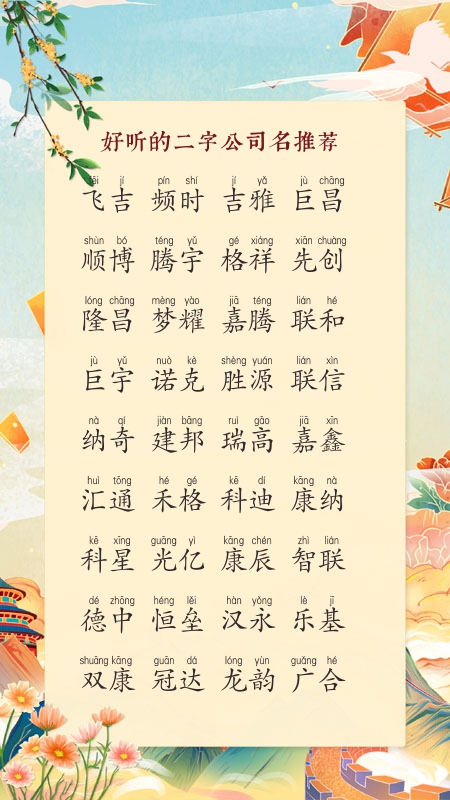 好听的二字公司名推荐
fēi jí pín shí jí yǎ jù chāng
飞吉 频时 吉雅 巨昌
shùn bó téng yǔ gé xiáng xiān chuàng
顺博 腾宇 格祥 先创
lóng chāng mèng yào jiā téng lián hé
隆昌 梦耀 嘉腾 联和
jù yǔ nuò kè shèng yuán lián xìn
巨宇 诺克 胜源 联信
nà qí jiàn bāng ruì gāo jiā xīn
纳奇 建邦 瑞高 嘉鑫
huì tōng hé gé kē dí kāng nà
汇通 禾格 科迪 康纳
kē xīng guāng yì kāng chén zhì lián
科星 光亿 康辰 智联
dé zhōng héng lěi hàn yǒng lè jī
德中 恒垒 汉永 乐基
shuāng kāng guān dá lóng yùn guǎng hé
双康 冠达 龙韵 广合